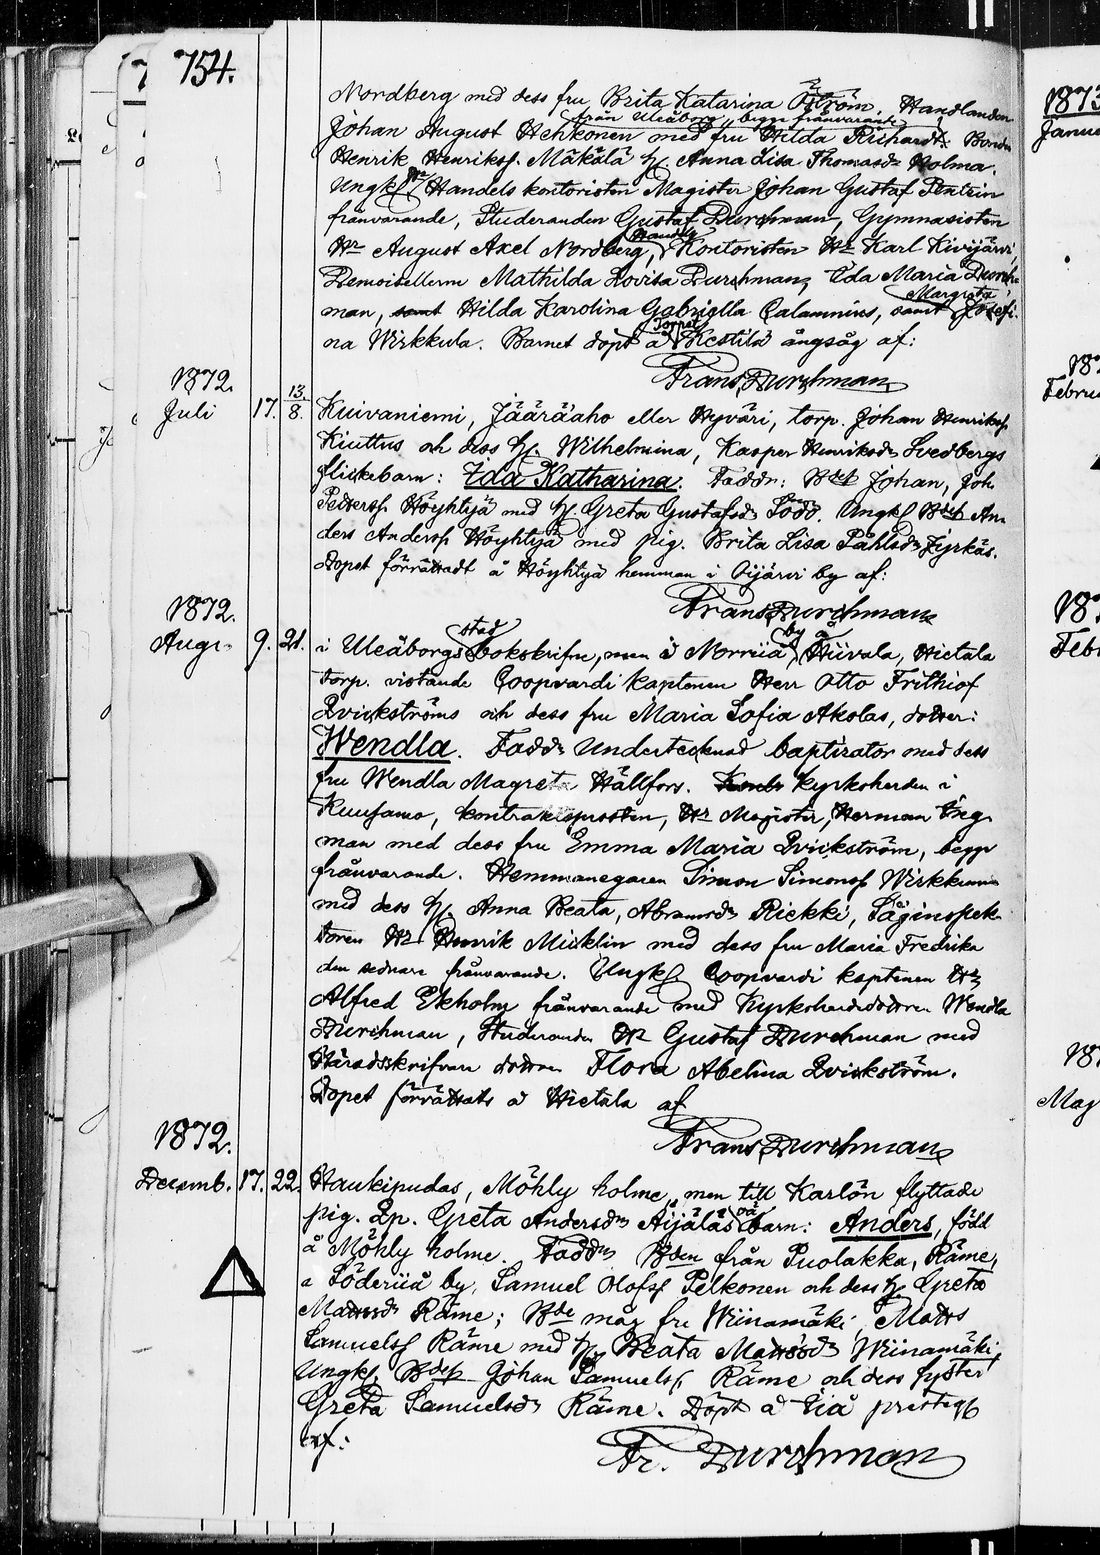 754.
Nordberg med dess fru Brita Katarina Öström. Handlanden
från Uleåborg, begge frånvarande
Johan August Hehkonen med fru Hilda Richardt. Bonden
Henrik Henrikss. Mäkälä h. Anna Lisa Thomasdr Holma.
Ungk. Hr Handels kontoristen Magister Johan Gustaf
frånvarande, Studeranden Gustaf Durchman, Gymnasisten
Hr August Axel Nordberg, Handels Kontoristen Hr Karl Kivijärvi,
Demoisellerna Mathilda Lovisa Durchman, Ida Maria Durch-
man, samt Hilda Karolina Gabriella Calamnius, samt Margreta Josefi-
na Wirkkula. Barnet döpt å Torpet Kestilä ångsåg af:
Frans Durchman
1872.
Juli 17. 13/8. Kuivaniemi, Jääräaho eller Hyväri, torp. Johan Henrikss.
Kiuttus och dess h. Wilhelmina, Kasper Henriksdr Svedbergs
flickebarn: Ida Katharina. Faddr: Bdes Johan, Joh.
Petterss. Höyhtyä med h. Greta Gustafsdr Södö. Ungk. Bdes An-
ders Anderss. Höyhtyä med pig. Brita Lisa Påhlsdr Jyrkäs.
Dopet förrättadt å Höyhtyä hemman i Oijärvi by af:
Frans Durchman
1872.
Aug. 9. 21. i Uleåborgs stad bokskrifne, men i Norriiå by å Hiivala, Hietala
torp. vistande Coopvardi kaptenen Herr Otto Frithiof
Qvickströms och dess fru Maria Sofia Akolas, dotter:
Wendla. Faddr Undertecknad baptizator med dess
fru Wendla Magreta Hällfors. Kyrkoherden i
Kuusamo, kontraktsprosten, Hr Magister, Herman Ing-
man med dess fru Emma Maria Qvickström, begge
frånvarande. Hemmanegaren Simon Simonss. Wirkkunen
med dess h. Anna Beata, Abramsdr Riekki, Såginspek-
toren Hr Henrik Micklin med dess fru Maria Fredrika
den sednare frånvarande. Ungk. Coopvardi kaptenen Hr
Alfred Ekholm frånvarande med Kyrkoherdedottren Wendla
Durchman, Studeranden Hr Gustaf Durchman med
Häradsskrifvare dottren Flora Abelina Qvickström.
Dopet förrättats å Hietala af
Frans Durchman
1872.
Decemb. 17. 22. Haukipudas, Möhly holme, men till Karlön flyttade
pig. Qp. Greta Andersdr Äijäläs oä barn: Anders, född
å Möhly holme. Faddr Bden från Puolakka, Räme,
a Söderiiå by, Samuel Olofss. Pelkonen och dess h. Greta
Mattsdr Räme; Bde måg fr. Wiinamäki Matts
Samuelss. Räme med h. Beata Mattsdr Wiinamäki,
Ungk. Bdes Johan Samuelss. Räme och dess syster
Greta Samuelsdr Räme. Döpt å Iiå prestegd
af:
Fr. Durchman
1873
Janua
187
Februa
187
Febr
187
Maj